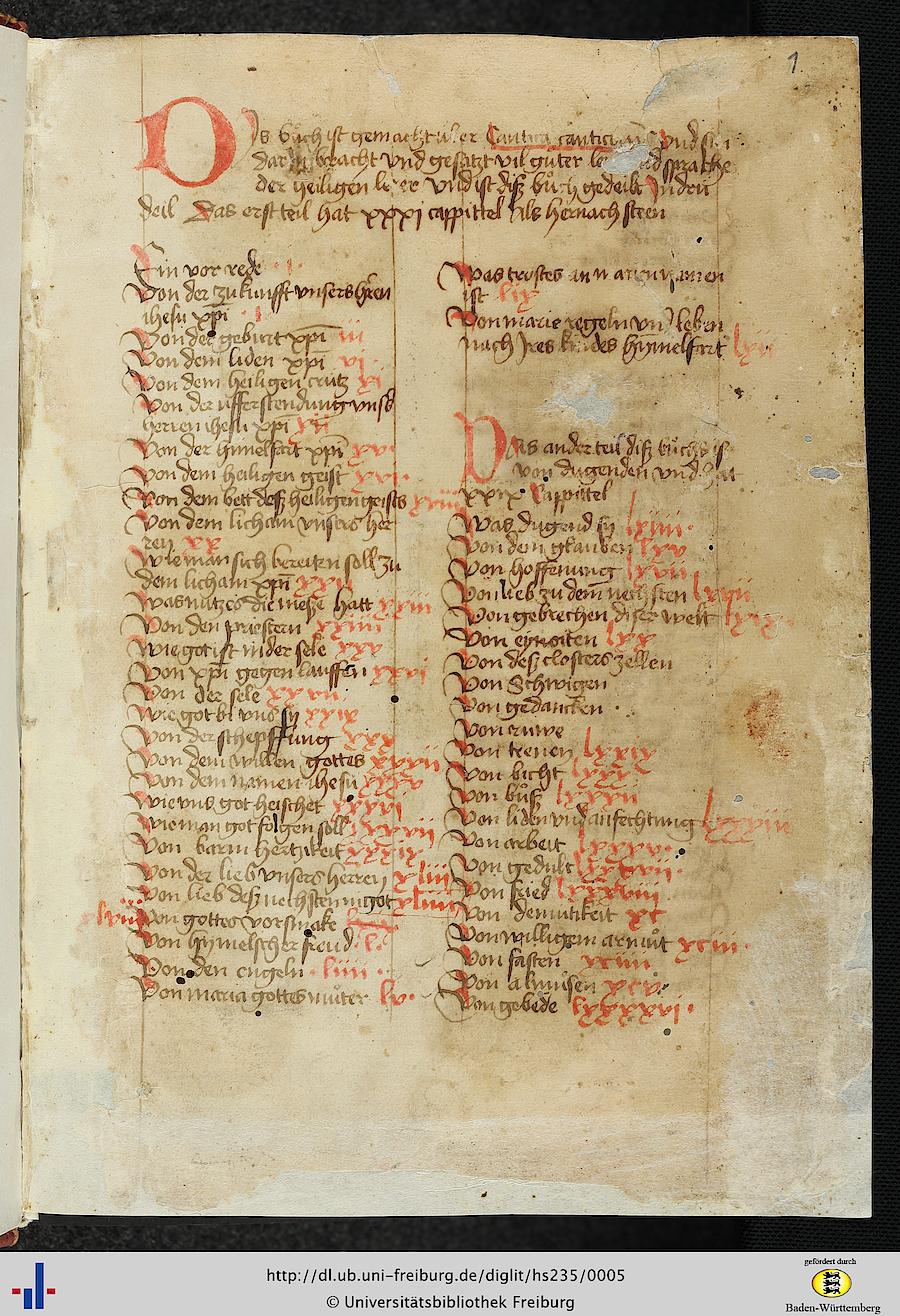 1
Das bůch ist gemacht uber Cantica canticorum Vnd sin
dar in bracht Vnd gesatzt vil guter ler vnd sprüche
der heiligen lerer Vnd ist disz bůch gedeilt In drü
deil Das erst teil hat xxxi cappittel Als hernach steen
Ein vor rede i
Von der zukunfft vnsers hren
ihesu xpi
Von der geburt xpi iii
Von dem liden xpi vi
Von dem heiligen crütz xi
Von der ufferstendung vnss
herren ihesu xpi xii
Von der himelfart xpi xv
Von dem heiligen geist xvi
Von dem bett desz heiligen geists xviii
Von dem licham vnsers her
ren xx
Wie man sich bereiten soll zu
dem licham xpi xxii
Was nützes die mesze hatt xxiii
Von den priestern xxiiii
Wie got ist in der sele xxv
Von xpi gegen lauffen xxvi
Von der sele xxvii
Wie got bi vns sy xxix
Von der schepffung xxx
Von dem willen gottes xxxii
Von dem namen ihesu xxxv
Wie vns got heischet xxxvi
Wie man got folgen soll xxxvii
Von barmhertzikeit xxxix
Von der lieb vnsers herren xliii
Von lieb desz nechsten in got xliiii
xlviii Von gottes vorsmake
Von hymelscher freud l
Von den engeln liiii
Von maria gottes můter lv
Was trostes an
ist lix
Von marie regeln vn leben
nach Ires kindes hymelfart lxii
Das ander teil disz bůchs ist
von dugenden vnd hat
xxix Cappittel
Was dugend sy lxiiii
Von dem glauben lxv
Von hoffenung lxvii
Von lieb zu dem nechsten lxviii
Von gebrechen diszer welt lxix
Von eynoiten lxx
Von desz closters zellen
Von Schwigen
Von gedancken
Von ruwe
Von trenen lxxix
Von bicht lxxx
Von bůsz lxxxii
Von liden vnd anfechtung lxxxiii
Von arbeit lxxxv
Von gedult lxxxvii
Von fried lxxxviii
Von demütikeit xc
Von willigem armůt xciii
Von fasten xciiii
Von almůsen xcv
Von gebede lxxxxvi
http://dl.ub.uni-freiburg.de/diglit/hs235/0005
© Universitätsbibliothek Freiburg
gefördert durch
Baden-Württemberg